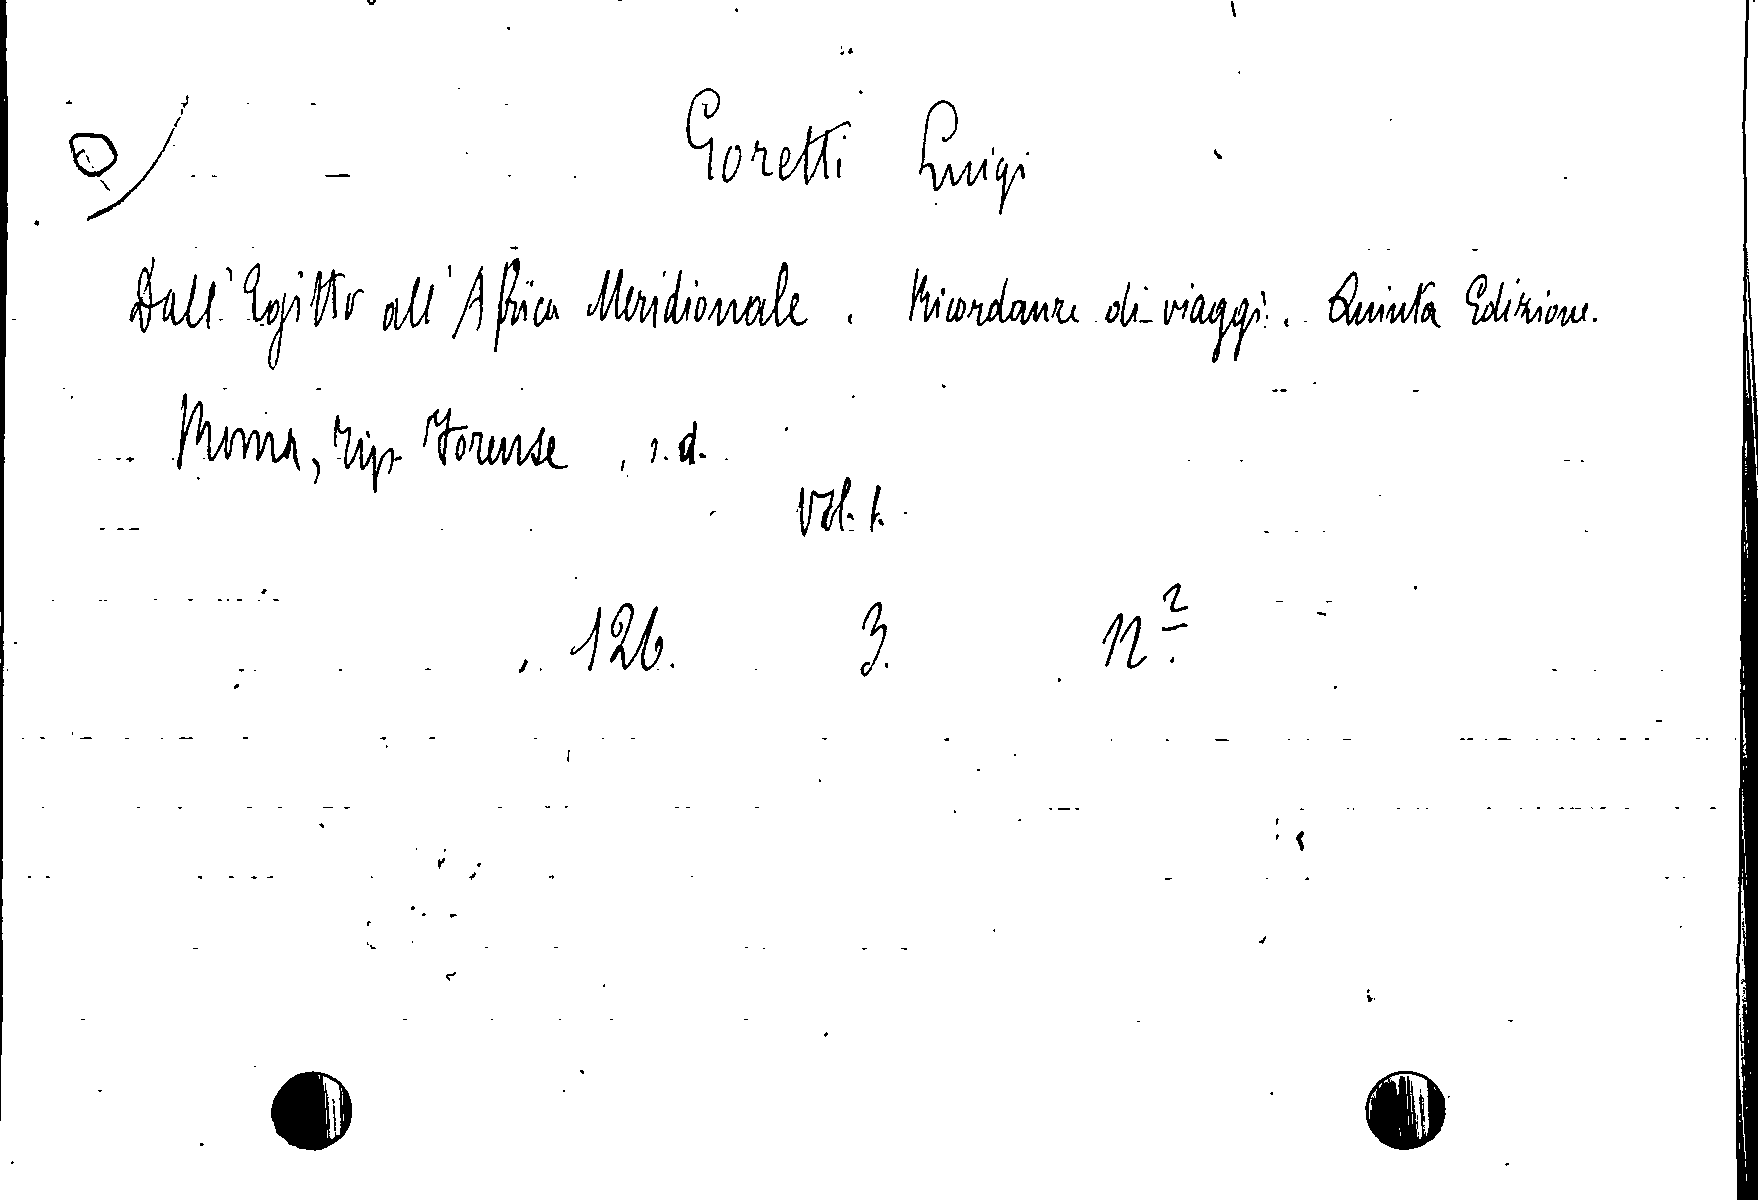 Goretti Luigi
Dall' Egitto all' Africa Meridionale. Ricordanze di viaggi. Quinta Edizione.
Roma, Tip. Forense, s.d.
Vol. 1.
126. 3. n²